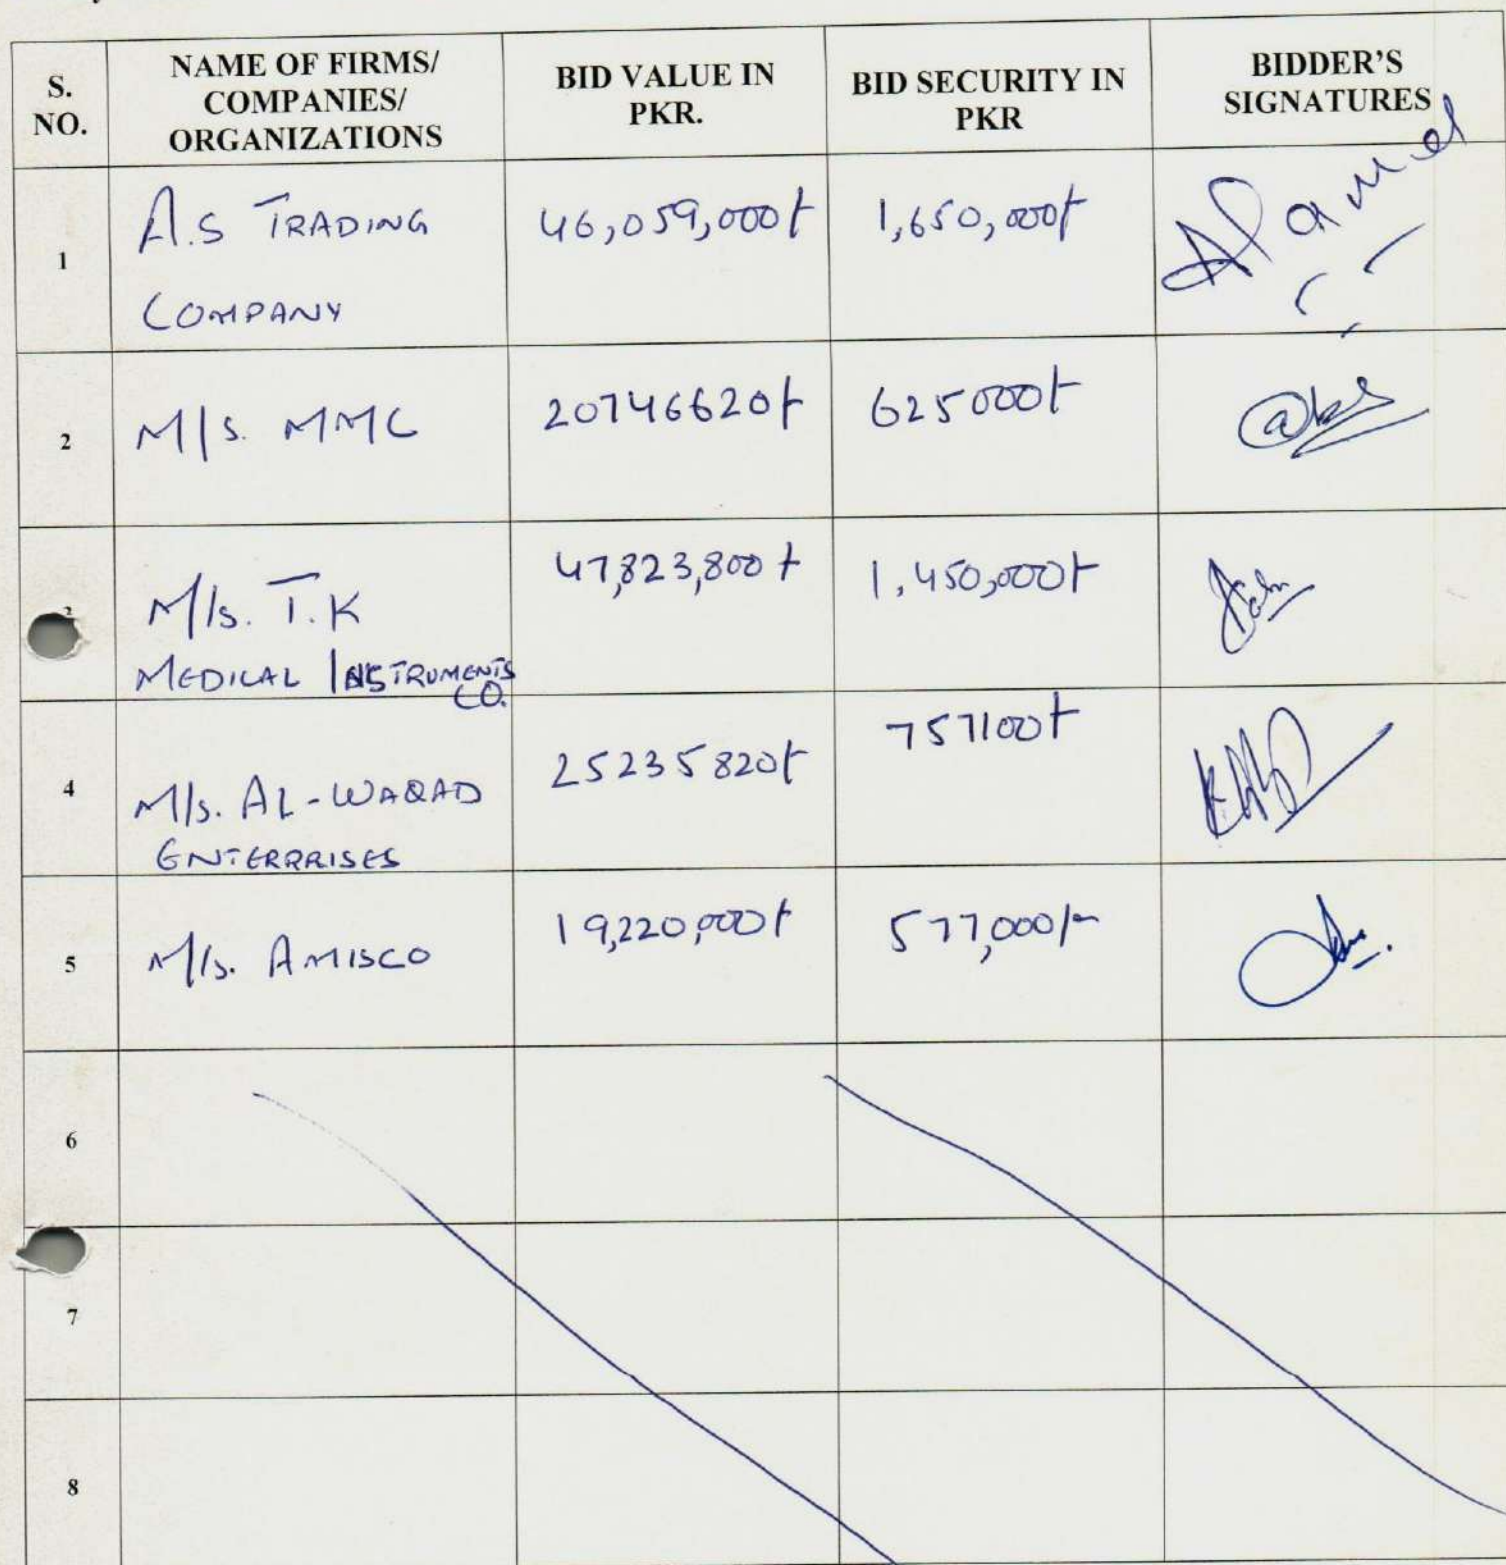 S.
NO.
NAME OF FIRMS/
COMPANIES/
ORGANIZATIONS
BID VALUE IN
PKR.
BID SECURITY IN
PKR
BIDDER'S
SIGNATURES
1
A.S TRADING
COMPANY
46,059,000/-
1,650,000/-
2
M/s. MMC
20746620/-
625000/-
3
M/s. T.K
MEDICAL INSTRUMENTS
CO.
47,823,800/-
1,450,000/-
4
M/s. AL-WAQAD
ENTERPRISES
25235820/-
757100/-
5
M/s. AMISCO
19,220,000/-
577,000/-
6
7
8